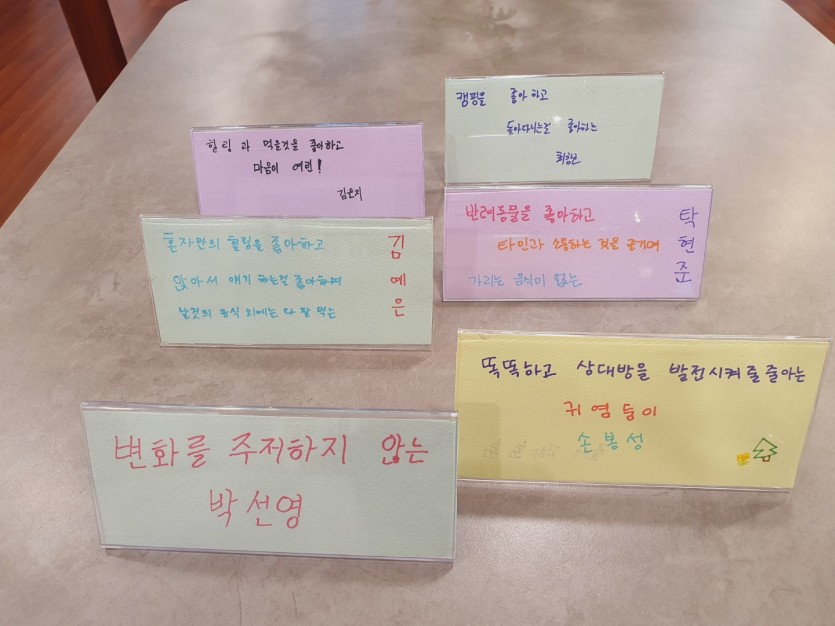 힐링과 먹을것을 좋아하고
마음이 여린!
김은지
캠핑을 좋아하고
돌아다니는걸 좋아하는
최창현
혼자만의 힐링을 좋아하고
앉아서 얘기 하는걸 좋아하며
날것의 음식 외에는 다 잘 먹는
김예은
반려동물을 좋아하고
타인과 소통하는 것을 즐기며
가리는 음식이 없는
탁현준
변화를 주저하지 않는
박선영
똑똑하고 상대방을 발전시켜줄줄아는
귀염둥이
손봉성